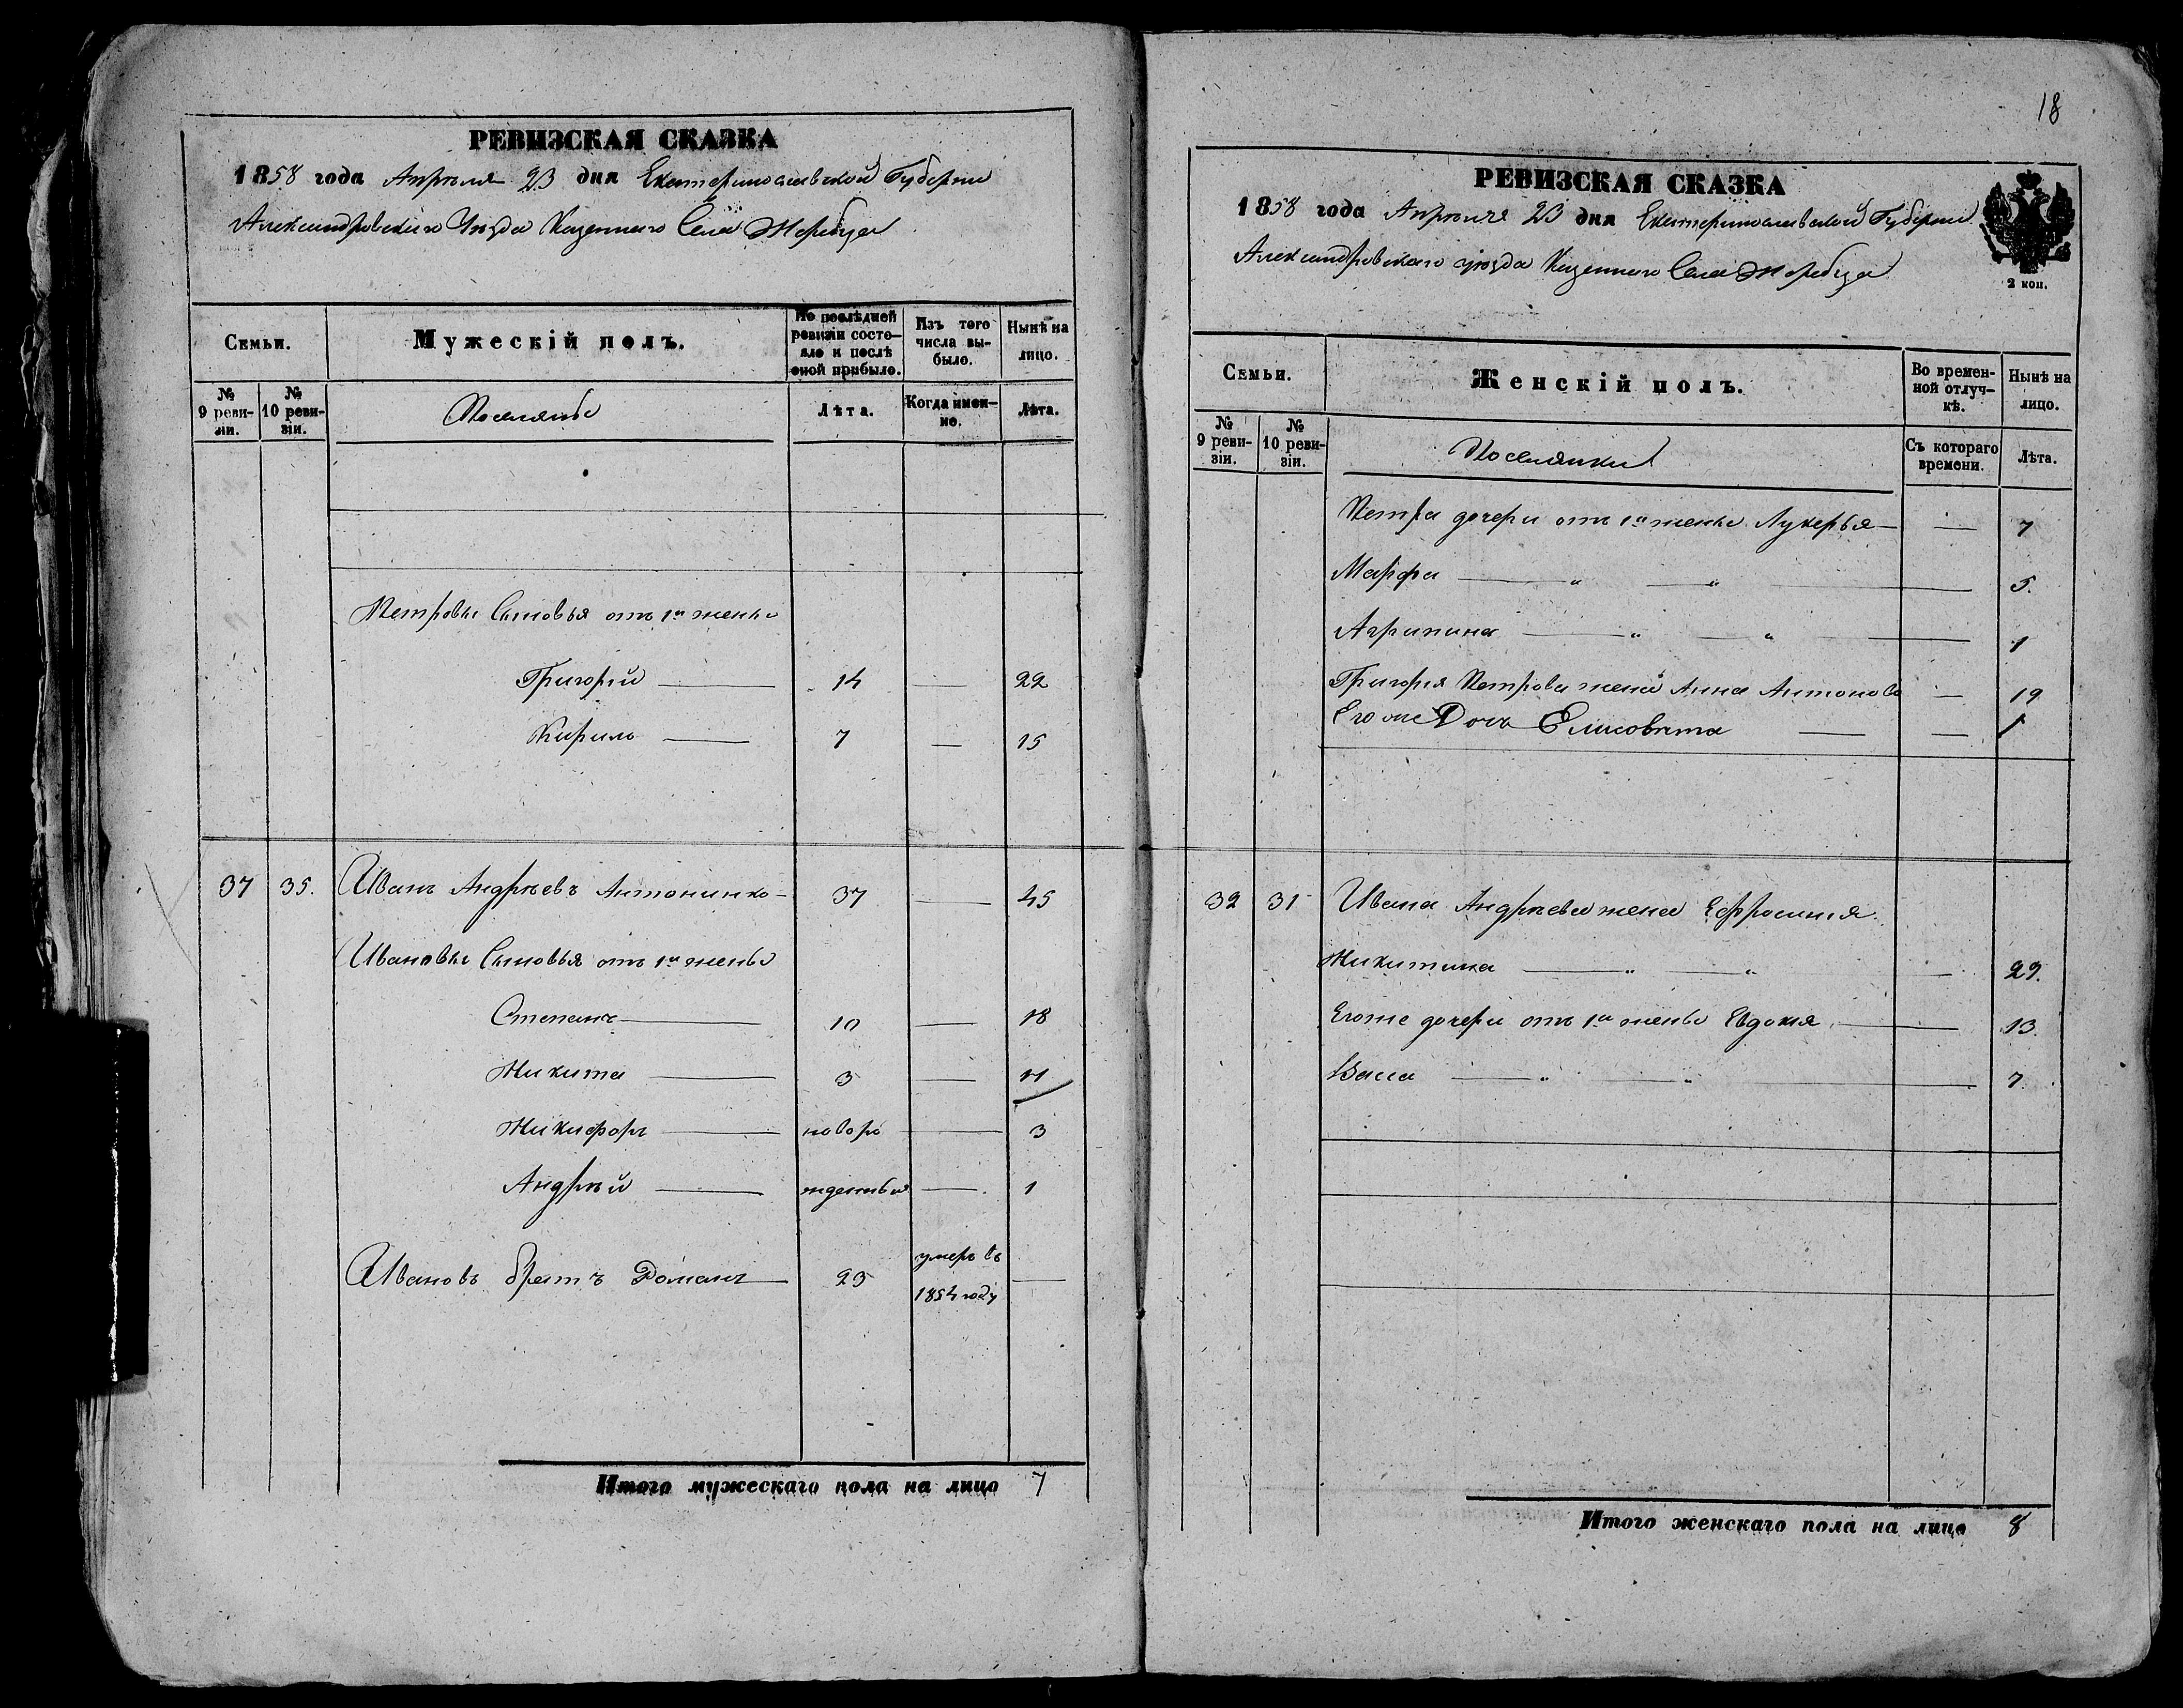 РЕВИЗСКАЯ СКАЗКА
1858 года Апреля 23 дня Екатеринославской Губернии
Александровского Уезда Казенного Села Жеребца
Семьи.
Мужескій полъ.
По послѣдней ревизіи состояло и послѣ оной прибыло.
Изъ того числа выбыло.
Нынѣ на лицо.
№ 9 ревизіи.
№ 10 ревизіи.
Поселяне
Лѣта.
Когда именно.
Лѣта.
Петровы Сыновья отъ 1й жены
Григорій 14 — 22
Кирилъ 7 — 15
37 35. Иванъ Андреевъ Антоненко 37 — 45
Ивановы Сыновья отъ 1й жены
Степанъ 10 — 18
Никита 3 — 11
Никифоръ новоро — 3
Андрѣй жденныя — 1
Ивановъ братъ Романъ 25 умеръ въ 1854 году —
Итого мужескаго пола на лицо 7
18
РЕВИЗСКАЯ СКАЗКА
1858 года Апреля 23 дня Екатеринославской Губернии
Александровскаго уезда Казенного Села Жеребца
2 коп.
Семьи.
Женскій полъ.
Во временной отлучкѣ.
Нынѣ на лицо.
№ 9 ревизіи.
№ 10 ревизіи.
Поселянки
Съ котораго времени.
Лѣта.
Петра дочери отъ 1й жены Лукерья — 7
Марфа — " — " — 5.
Агрипина — " — " — 1
Григорія Петрова жена Анна Антонова — 19
Его же Дочь Елисовета — 1
32 31 Ивана Андреева жена Ефросинія
Никитина — " — " — 29.
Его же дочери отъ 1й жены Евдокія — 13.
Васа — " — " — 7.
Итого женскаго пола на лицо 8